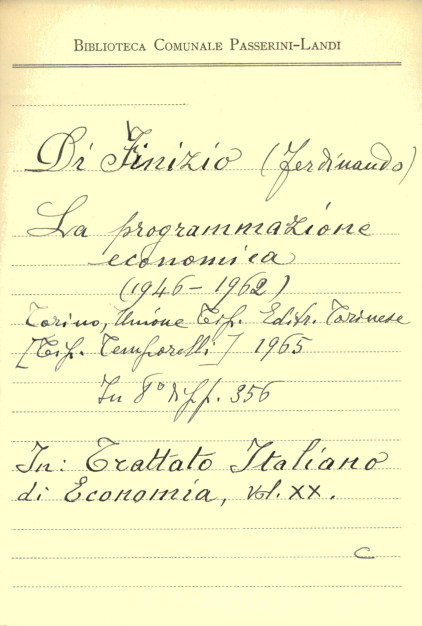 BIBLIOTECA COMUNALE PASSERINI-LANDI
Di Finizio (Ferdinando)
La programmazione
economica
(1946-1962)
Torino, Unione Tip. Editr. Torinese
[Tip. Temporelli] 1965
In 8° di pp. 356
In: Trattato Italiano
di Economia, vol. XX.
C